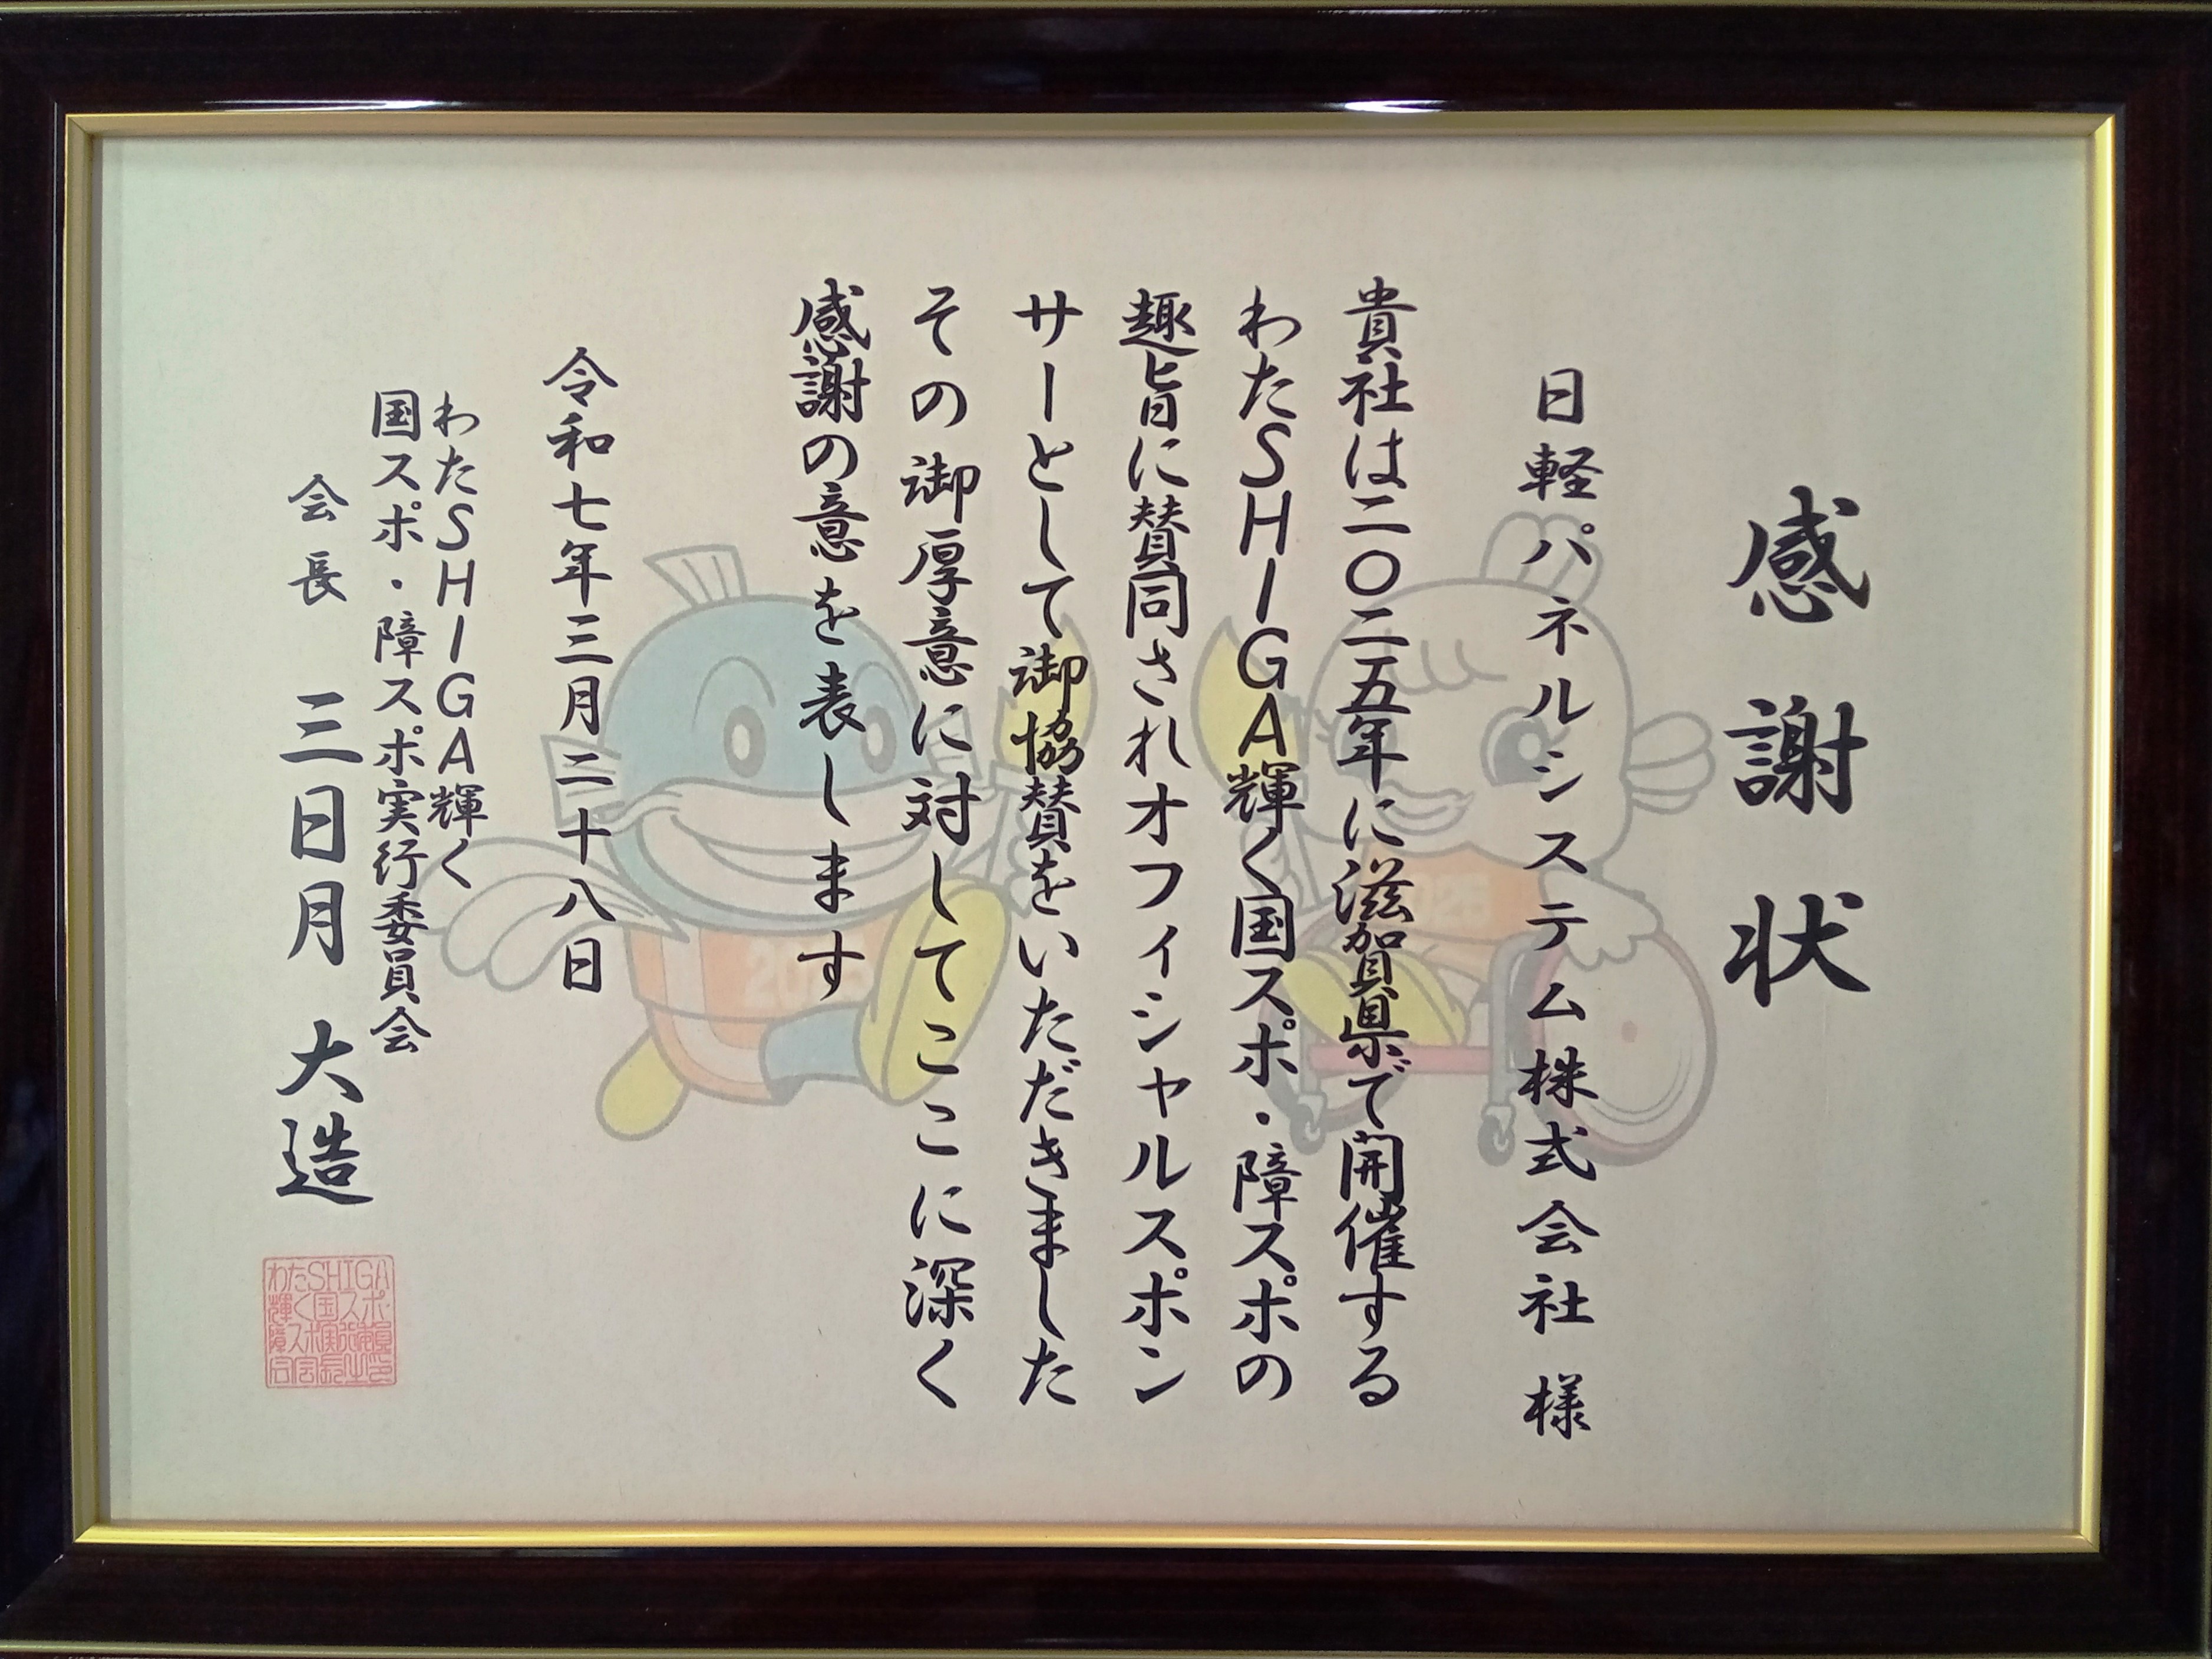 感謝状
日軽パネルシステム株式会社 様
貴社は二〇二五年に滋賀県で開催する
わたSHIGA輝く国スポ・障スポの
趣旨に賛同されオフィシャルスポン
サーとして御協賛をいただきました
その御厚意に対してここに深く
感謝の意を表します
令和七年三月二十八日
わたSHIGA輝く
国スポ・障スポ実行委員会
会長 三日月 大造
わたSHIGA
輝く国スポ・
2025
2025